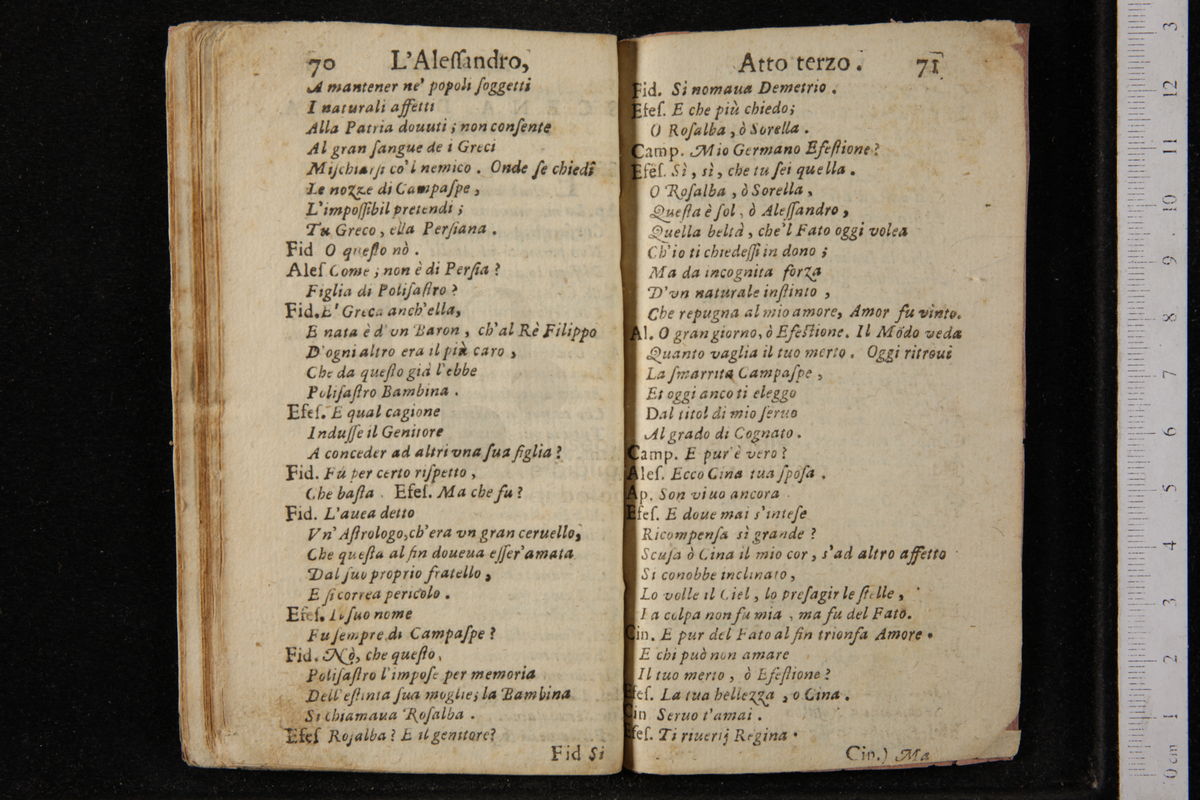 70 L'Aleſſandro,
A mantener ne' popoli ſoggetti
I naturali affetti
Alla Patria douuti ; non conſente
Al gran ſangue de i Greci
Miſchiarſi co'l nemico . Onde ſe chiedi
Le nozze di Campaſpe ,
L'impoſſibil pretendi ;
Tu Greco , ella Perſiana .
Fid O queſto nò .
Aleſ Come ; non è di Perſia ?
Figlia di Poliſaſtro ?
Fid. E' Greca anch'ella,
E nata è d'vn Baron , ch'al Rè Filippo
D'ogni altro era il più caro ,
Che da queſto già l'ebbe
Poliſaſtro Bambina .
Efeſ. E qual cagione
Induſſe il Genitore
A conceder ad altri vna ſua figlia ?
Fid. Fù per certo riſpetto ,
Che baſta . Efeſ. Ma che fu ?
Fid. L'auea detto
Vn' Aſtrologo, ch'era vn gran ceruello,
Che queſta al fin doueua eſſer' amata
Dal ſuo proprio fratello ,
E ſi correa pericolo .
Efeſ. Il ſuo nome
Fu ſempre di Campaſpe ?
Fid. Nò, che queſto,
Poliſaſtro l'impoſe per memoria
Dell'eſtinta ſua moglie; la Bambina
Si chiamaua Roſalba .
Efeſ Roſalba ? E il genitore?
Fid Si
Atto terzo . 71
Fid. Si nomaua Demetrio .
Efeſ. E che più chiedo;
O Roſalba , ò Sorella .
Camp. Mio Germano Efeſtione ?
Efeſ. Sì , sì , che tu ſei quella .
O Roſalba , ò Sorella ,
Queſta è ſol , ò Aleſſandro ,
Quella beltà , che'l Fato oggi volea
Ch'io ti chiedeſſi in dono ;
Ma da incognita forza
D'vn naturale inſtinto ,
Che repugna al mio amore, Amor fu vinto.
Al. O gran giorno, ò Efeſtione. Il Mõdo veda
Quanto vaglia il tuo merto . Oggi ritroui
La ſmarrita Campaſpe ,
Et oggi anco ti eleggo
Dal titol di mio ſeruo
Al grado di Cognato .
Camp. E pur è vero ?
Aleſ. Ecco Cina tua ſpoſa .
Ap. Son viuo ancora .
Efeſ. E doue mai s'inteſe
Ricompenſa sì grande ?
Scuſa ò Cina il mio cor , s'ad altro affetto
Si conobbe inclinato ,
Lo volle il Ciel , lo preſagir le ſtelle ,
La colpa non fu mia , ma fu del Fato.
Cin. E pur del Fato al fin trionfa Amore .
E chi può non amare
Il tuo merto , ò Efeſtione ?
Efeſ. La tua bellezza , o Cina .
Cin Seruo t'amai .
Efeſ. Ti riuerij Regina .
Cin.) Ma
3
12
11
10
9
8
7
6
5
4
3
2
1
0 cm